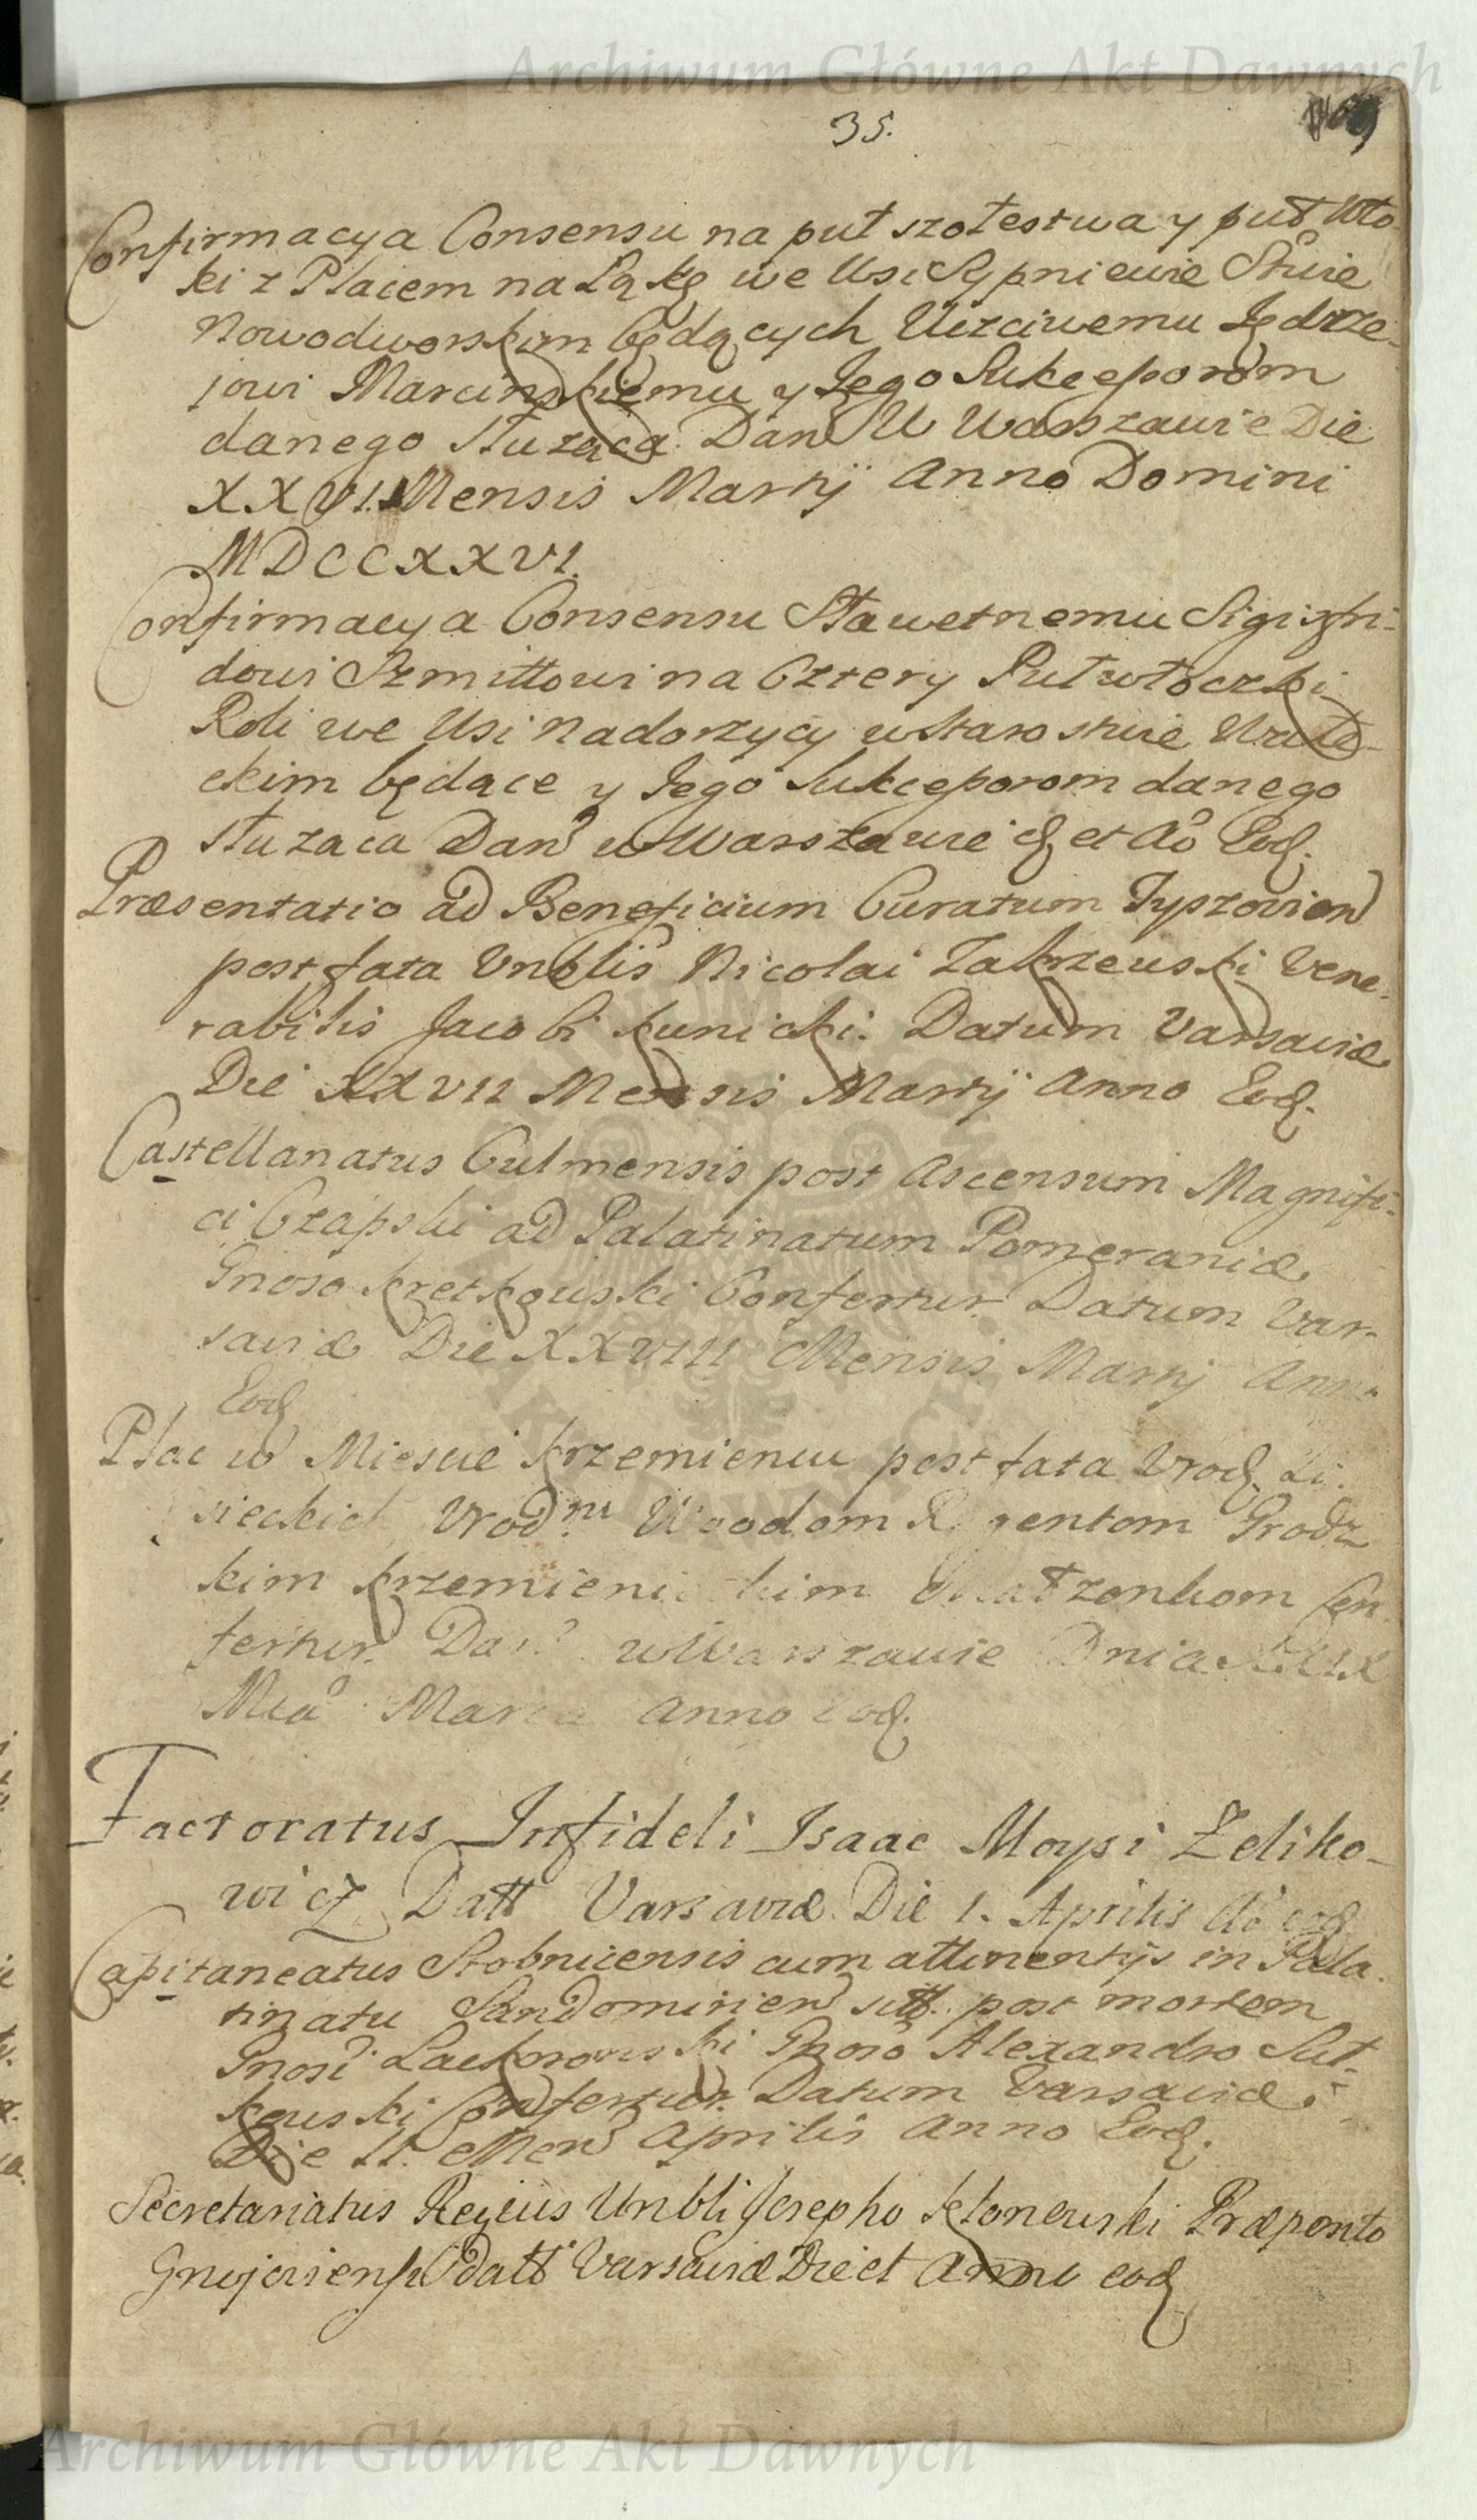 Archiwum Główne Akt Dawnych
35.
Confirmacya Consensu na puł szołestwa y puł Wło-
ki z Placem na Łąkę we Wsi Sypniewie Stwie
Nowodworskim będących Uczciwemu Jędrze-
jowi Marcinskiemu y Jego Sukcessorom
danego służąca. Dan W Warszawie Die
XXVI. Mensis Martÿ Anno Domini
MDCCXXVI.
Confirmacya Consensu Sławetnemu Sigisfri-
dowi Szmittowi na Cztery Pułwłoczki
Roli we Wsi Nadorzycy w Starostwie Wałe-
ckim będące y Jego Sukcessorom danego
służaca Dan w Warszawie et Ao Eod.
Præsentatio ad Beneficium Curatum Tyszovien
post fata Vnblis Nicolai Zakrzewski Vene-
rabilis Jacobi Kunicki. Datum Varsaviæ
Die XXVII Mensis Martÿ Anno Eod.
Castellanatus Culmensis post Ascensum Magnifi-
ci Czapski ad Palatinatum Pomeraniæ
Gnoso Kretkowski Confertur. Datum Var-
saviæ Die XXVIII Mensis Martÿ Anno
Eod
Plac w Miescie Krzemiencu post fata Vrod. Li-
sieckich Vrodnÿ Regentom Grodz
kim Krzemienieckim Małzonkom Con-
fertur. Dan w Warszawie Dnia XXIX
Mca Marca Anno eod.
Factoratus Infideli Isaac Moysi Zeliko-
wicz Datt Varsaviæ Die 1. Aprilis Ao eod
Capitaneatus Stobnicensis cum attinentijs in Pala-
tinatu Sandomirien sitt. post mortem
Gnosi Lackorowski Gnoso Alexandro Sut-
kowski Confertur. Datum Varsaviæ
Die II. Men Aprilis Anno Eod.
Secretariatus Regius Vnbli Josepho Klonewski Præposito
Gnojeriensi datt Varsaviæ Die et Anno eod
Archiwum Główne Akt Dawnych